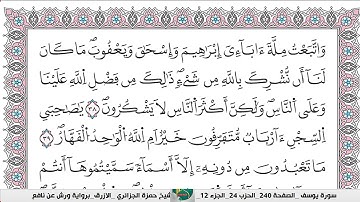 وَاتَّبَعْتُ مِلَّةَ ءَابَآءِىَ إِبْرَٰهِيمَ وَإِسْحَٰقَ وَيَعْقُوبَ مَا كَانَ
لَنَآ أَن نُّشْرِكَ بِاللَّهِ مِن شَىْءٍ ذَٰلِكَ مِن فَضْلِ اللَّهِ عَلَيْنَا
وَعَلَى النَّاسِ وَلَٰكِنَّ أَكْثَرَ النَّاسِ لَا يَشْكُرُونَ ٣٨ يَٰصَٰحِبَىِ
السِّجْنِ ءَآرْبَابٌ مُّتَفَرِّقُونَ خَيْرٌ أَمِ اللَّهُ الْوَٰحِدُ الْقَهَّارُ
مَا تَعْبُدُونَ مِن دُونِهِۦٓ إِلَّآ أَسْمَآءً سَمَّيْتُمُوهَآ أَنتُمْ
سورة يوسف _ الصفحة 240_ الحزب 24_ الجزء 12_ شيخ حمزة الجزائري _الازرق_برواية ورش عن نافع